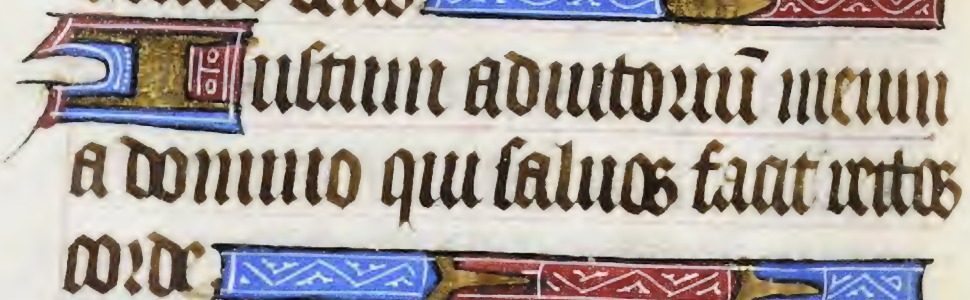 Iustum adiutoriū meum
a domino qui saluos facit rectos
corde